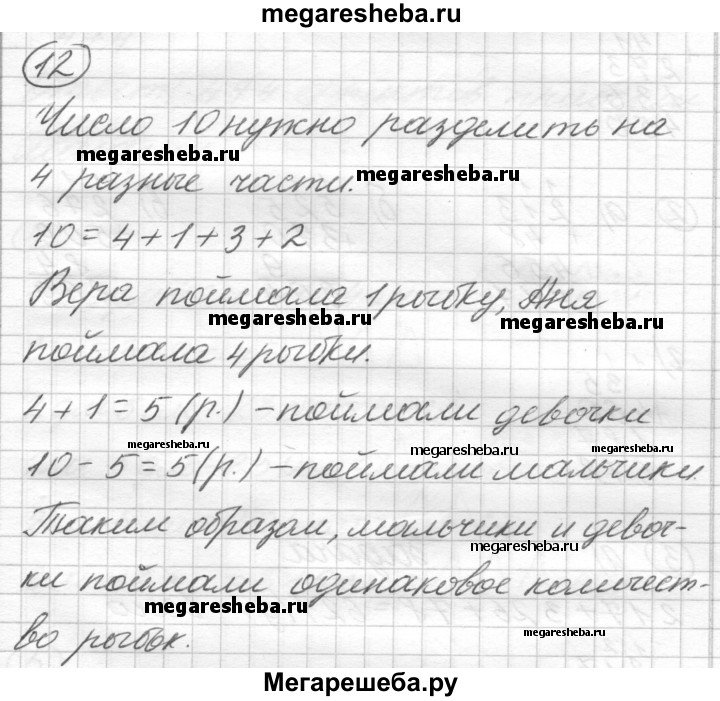 megaresheba.ru
12
Число 10 нужно разделить на
megaresheba.ru
megaresheba.ru
4 разные части.
10 = 4 + 1 + 3 + 2
Вера поймала 1 рыбку, Аня
megaresheba.ru
megaresheba.ru
поймала 4 рыбки.
4 + 1 = 5 (р.) – поймали девочки
megaresheba.ru
megaresheba.ru
megaresheba.ru
10 - 5 = 5 (р.) – поймали мальчики.
Таким образом, мальчики и девоч-
megaresheba.ru
ки поймали одинаковое количест-
megaresheba.ru
megaresheba.ru
во рыбок.
Мегарешеба.ру